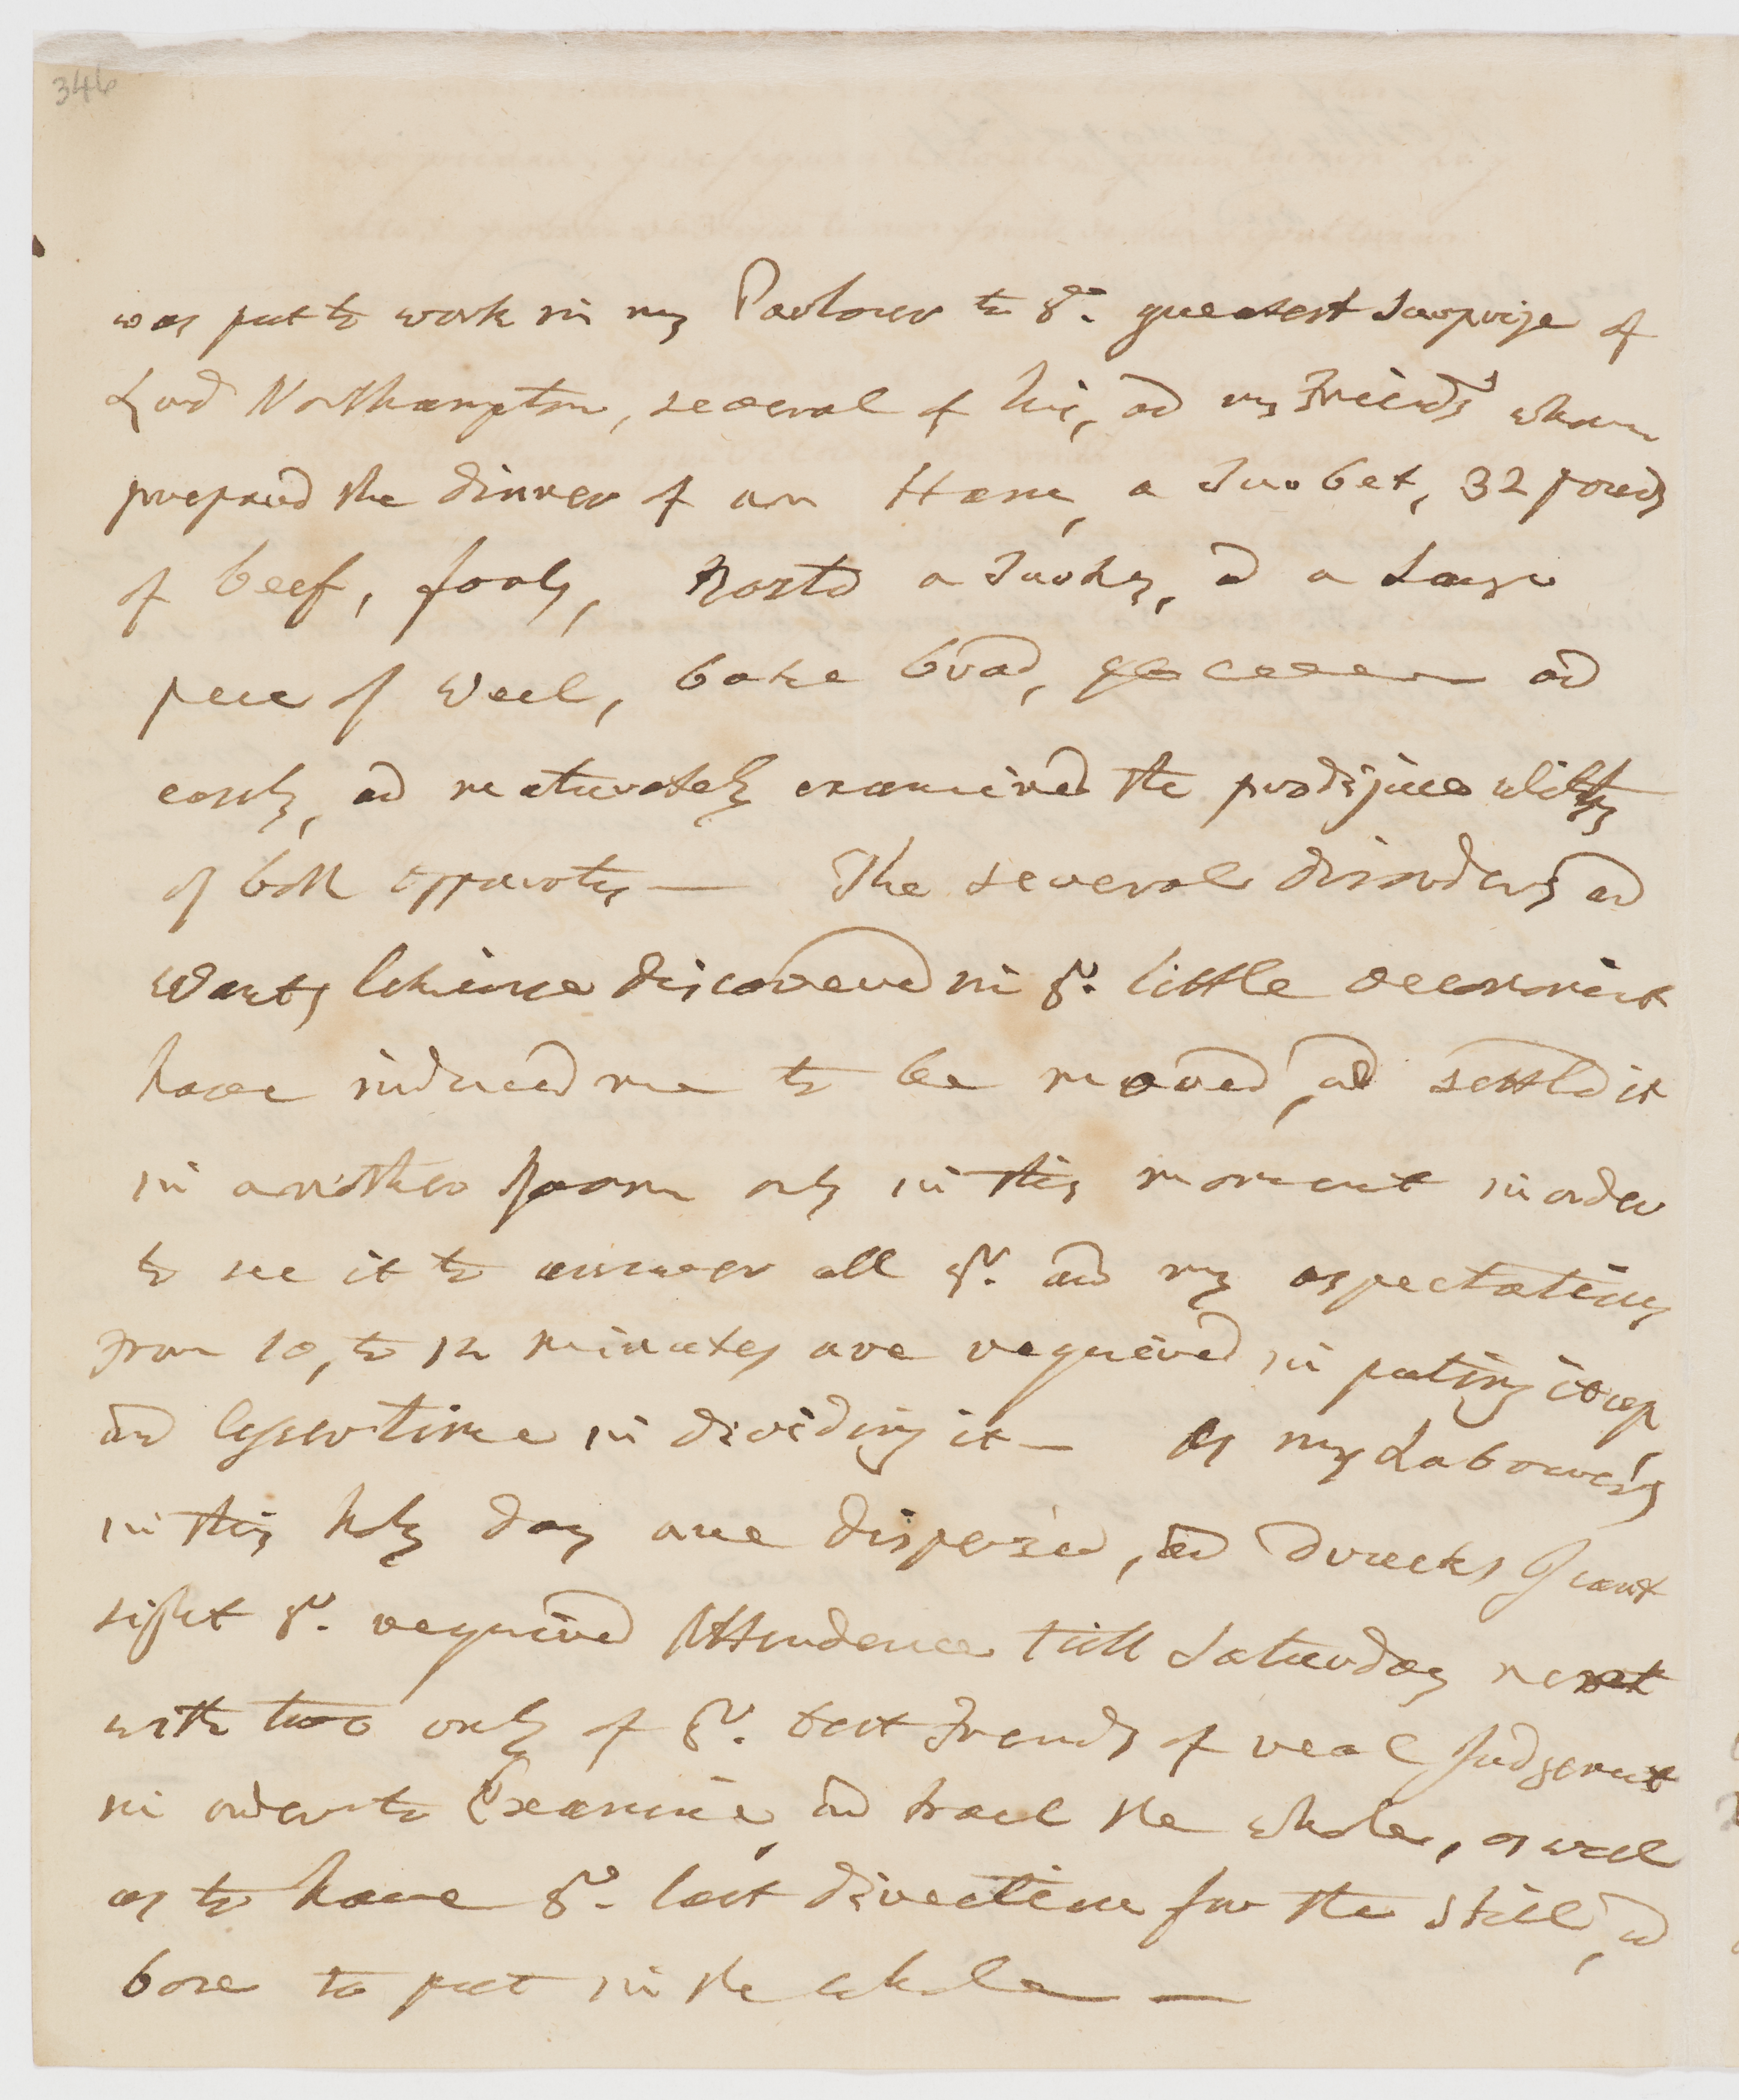 346
was put to work in my Parlour to yr. greatest Surprize of
Lord Northampton, several of his, and my Friends whom
prepared the dinner of an Ham, a Turbet, 32 pounds
of beef, fouls, Rosted a Turky, and a Large
piece of Weel, bake bread, and
easely, and maturately examined the prodijuus utility
of both apparatus — The several disorders and
Wants likewise discovered in yr. little oeconomist
have induced me to be moved, and settled it
in another Room only in this moment in order
to see it to answer all yr. and my aspectations
From 10, to 12 minutes are required in puting it up
and lesser time in dividing it — As my Labourers
in this holy day are dispersed, and drunks I cant
sight yr. required Attendence till Saturday next
with two only of yr. best Friends of real Judgement
in order to Examine, and the whole, as well
as to have yr. last direction for the Still, and
boxe to put in the whole —